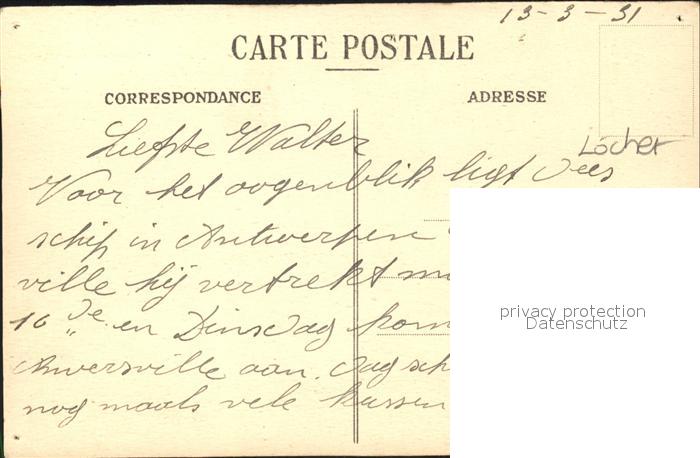 13-3-31
CARTE POSTALE
CORRESPONDANCE
ADRESSE
Löcher
Liefste Walter
Voor het oogenblik ligt dees
schip in Antwerpen
ville hij vertrekt
16 de en Dinsdag kom
Anversville aan. dag sch
nog maals vele kussen
privacy protection
Datenschutz